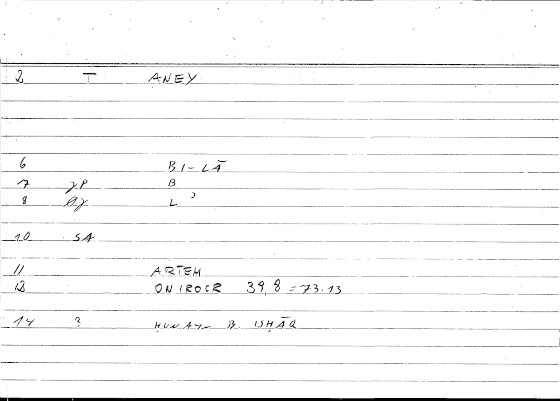 2 T ANEY
6 BI-LĀ
7 γP B
8 βγ L ʾ
10 SA
11 ARTEM
12 ONIROCR 39,8 = 73.13
14 ? ḤUNAY- B. ISḤĀQ